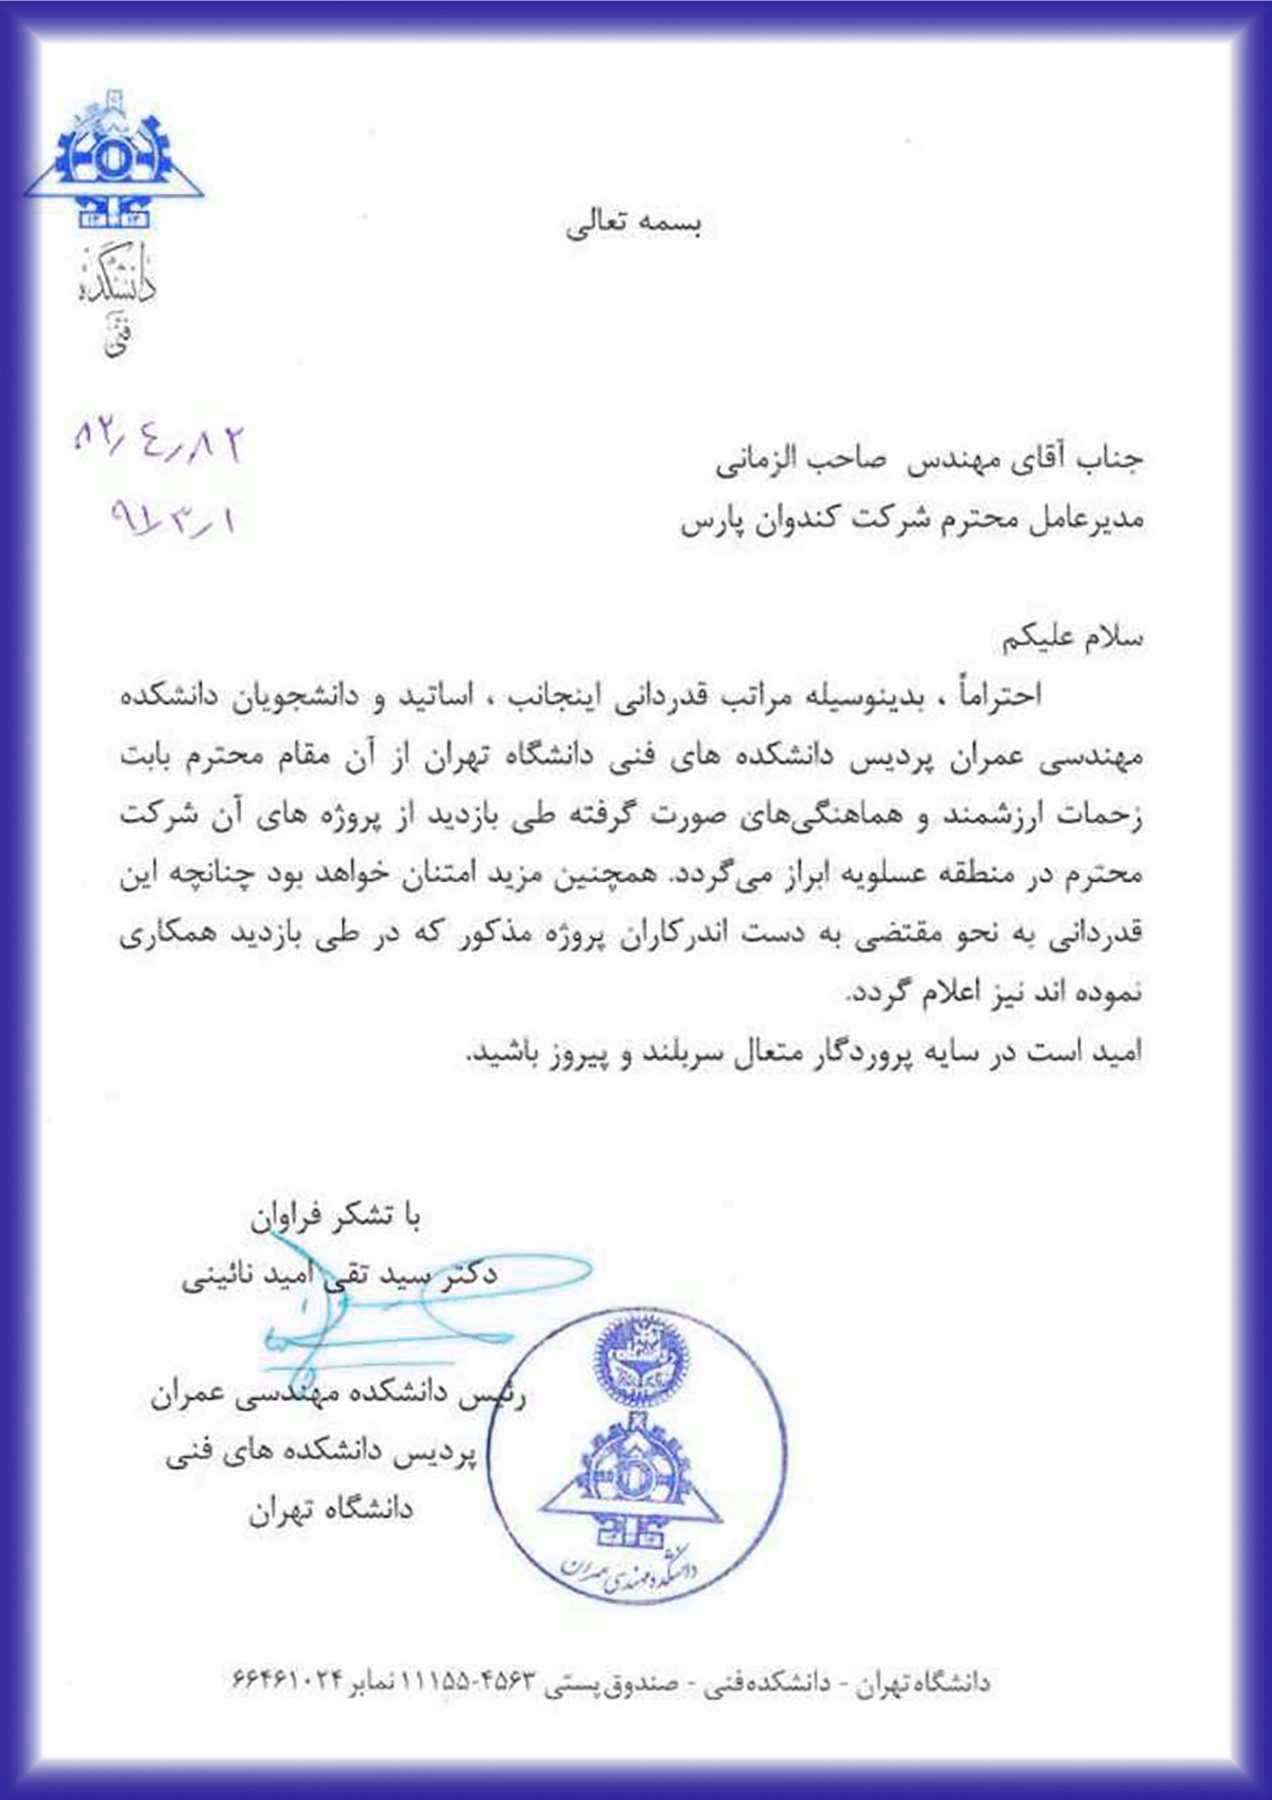 دانشکده
فنی
بسمه تعالی
۸۲٫۴٫۸۲
۹۱٫۳٫۱
جناب آقای مهندس صاحب الزمانی
مدیرعامل محترم شرکت کندوان پارس
سلام علیکم
احتراماً ، بدینوسیله مراتب قدردانی اینجانب ، اساتید و دانشجویان دانشکده
مهندسی عمران پردیس دانشکده های فنی دانشگاه تهران از آن مقام محترم بابت
زحمات ارزشمند و هماهنگی‌های صورت گرفته طی بازدید از پروژه های آن شرکت
محترم در منطقه عسلویه ابراز می‌گردد. همچنین مزید امتنان خواهد بود چنانچه این
قدردانی به نحو مقتضی به دست اندرکاران پروژه مذکور که در طی بازدید همکاری
نموده اند نیز اعلام گردد.
امید است در سایه پروردگار متعال سربلند و پیروز باشید.
با تشکر فراوان
دکتر سید تقی امید نائینی
رئیس دانشکده مهندسی عمران
پردیس دانشکده های فنی
دانشگاه تهران
دانشکده مهندسی عمران
دانشگاه تهران - دانشکده فنی - صندوق پستی ۴۵۶۳-۱۱۱۵۵ نمابر ۶۶۴۶۱۰۲۴